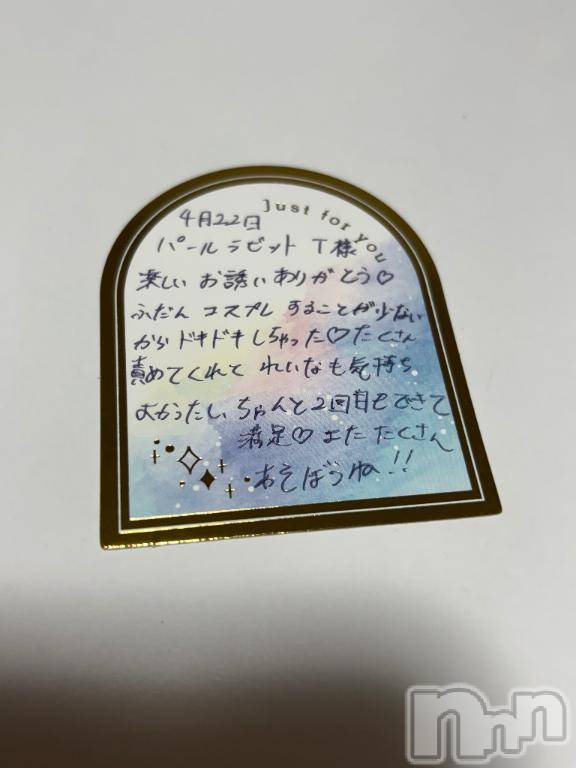 Just for you
4月22日
パールラビット T様
楽しい お誘い ありがとう♡
ふだん コスプレ することが少ない
から ドキドキしちゃった♡ たくさん
責めてくれて れいなも気持ち
よかったし ちゃんと2回目もできて
満足♡ また たくさん
あそぼうね!!
nnn